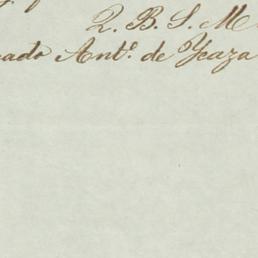 Q. B. S. M
cado Ant.º de Ycaza